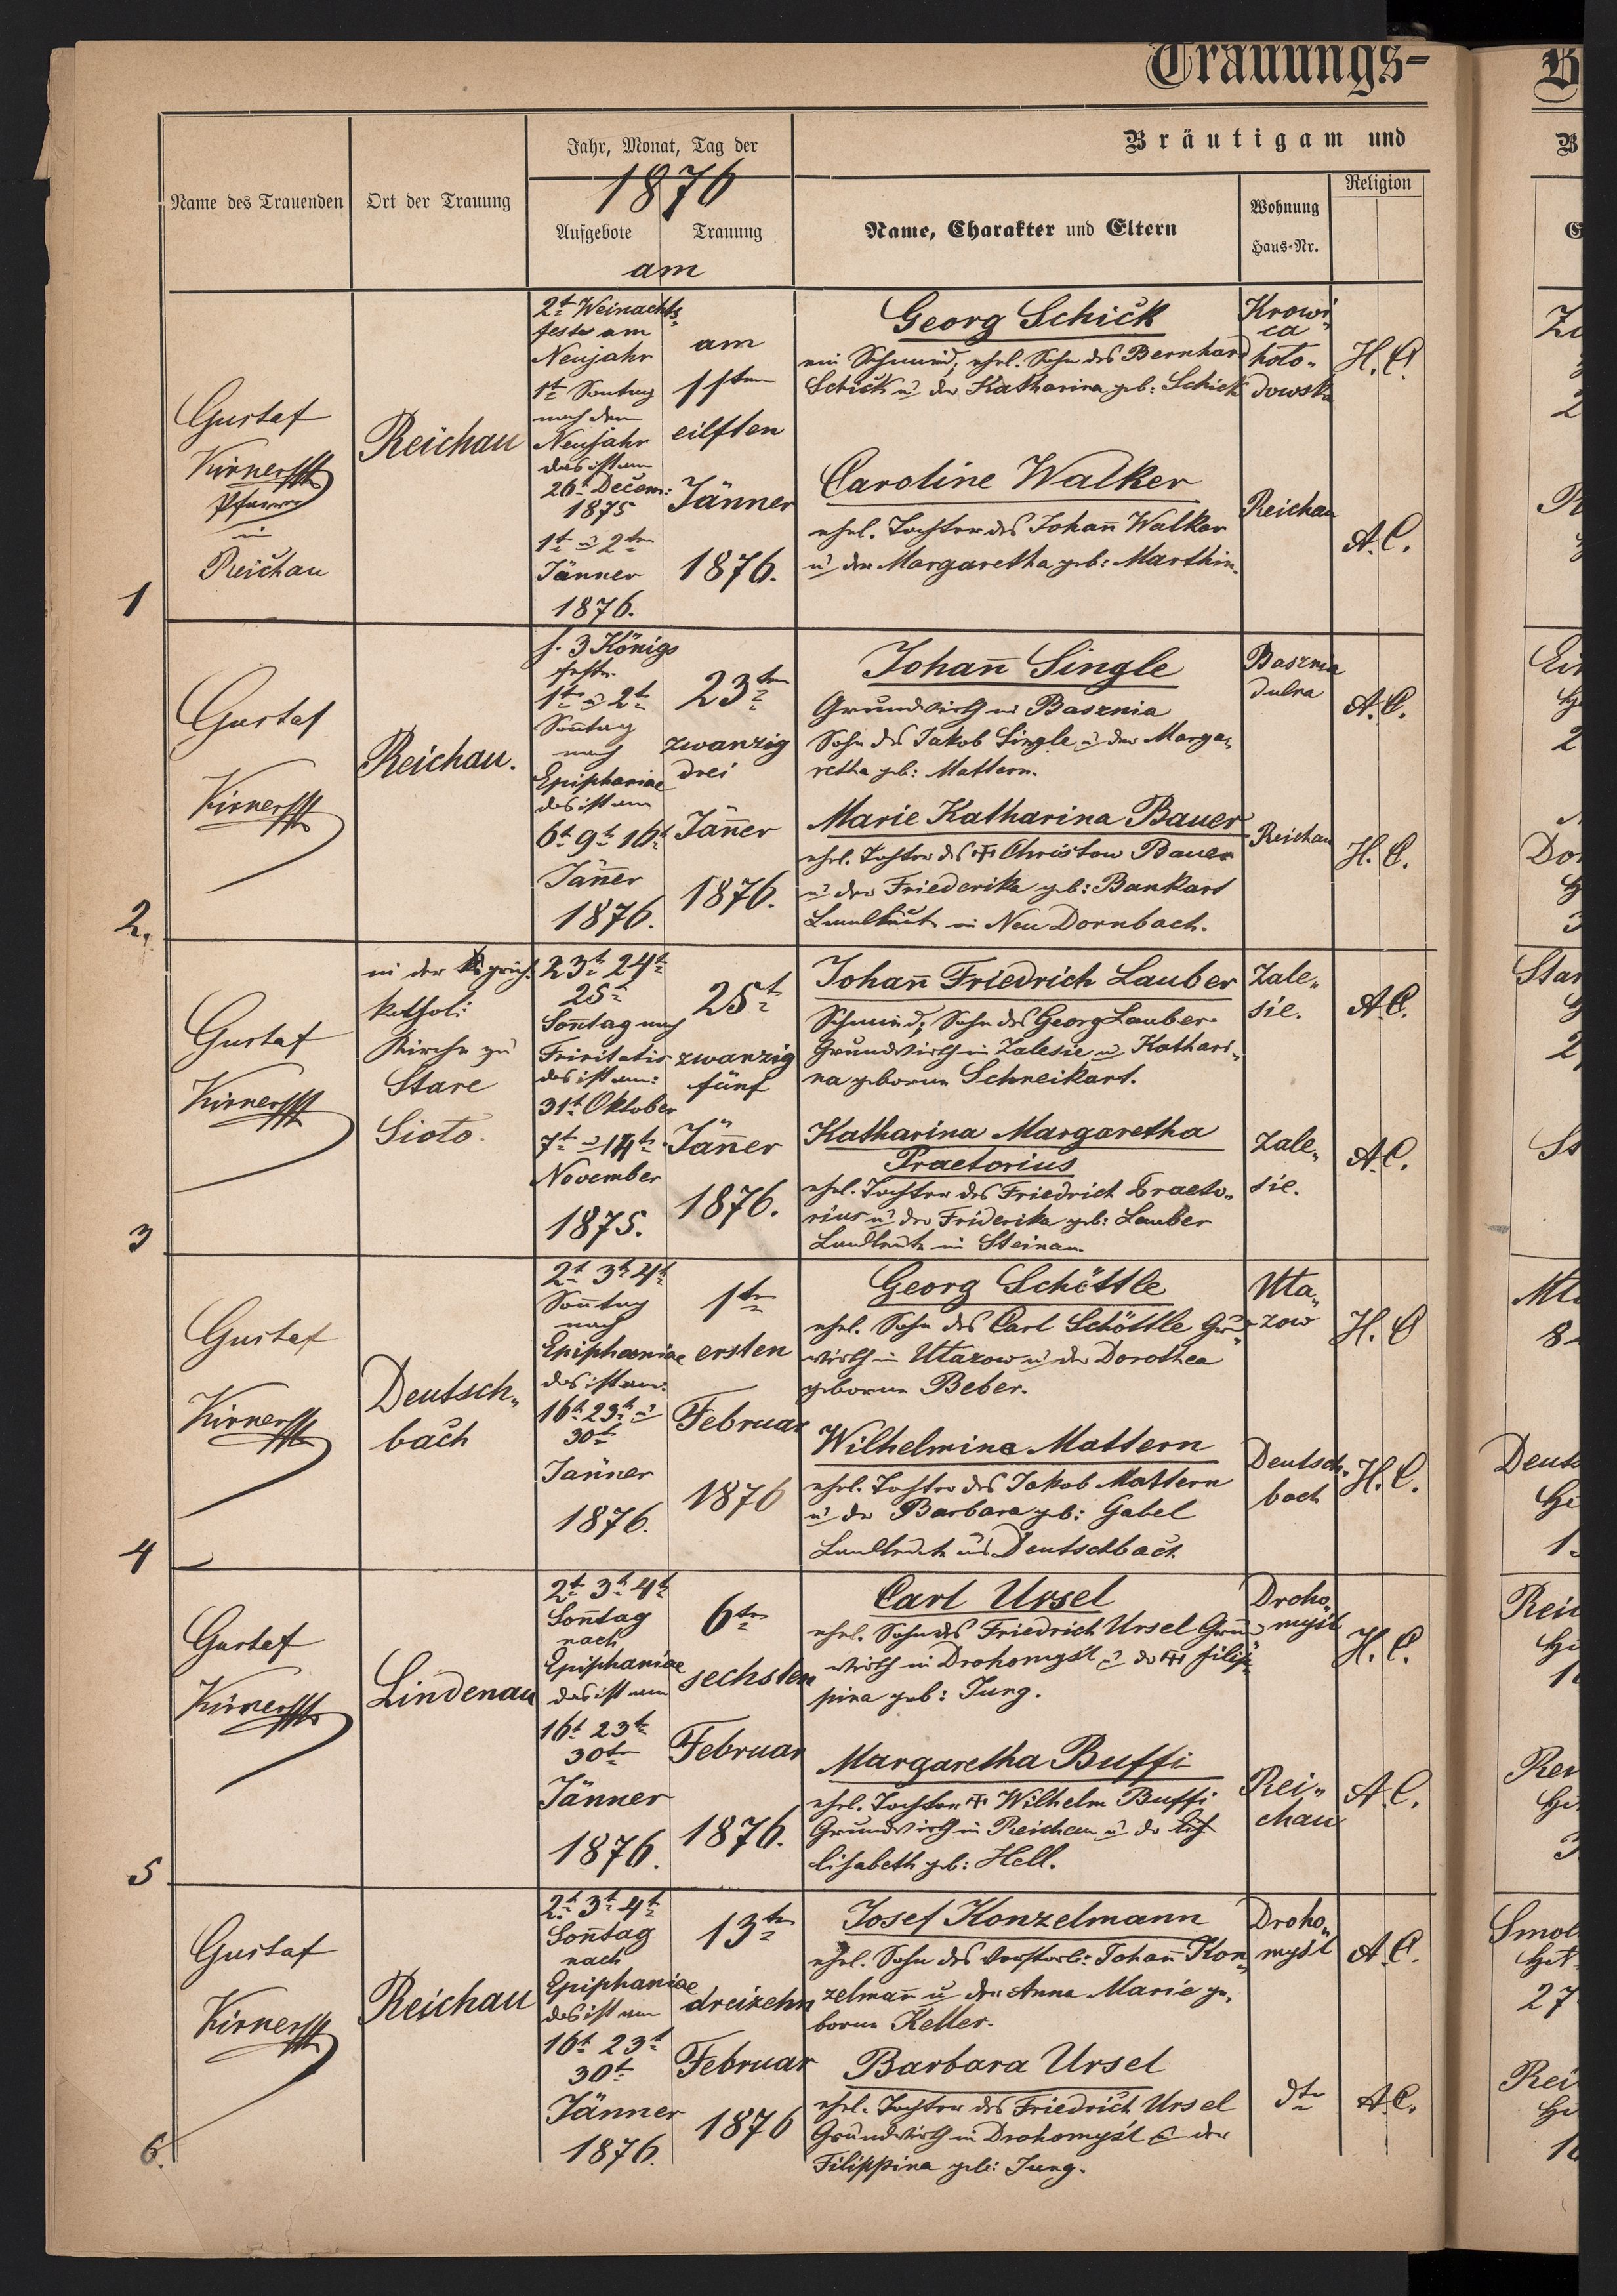 Trauungs-
Jahr, Monat, Tag der
Bräutigam und
1876
Name des Trauenden
Ort der Trauung
Aufgebote
Trauung
am
Name, Charakter und Eltern
Wohnung
Haus-Nr.
Religion
1
Gustaf
Kirner
Pfarrer
in
Reichau
Reichau
2t Weinachts
feste am
Neujahr
1t Sontag
nach dem
Neujahr
das ist am
26t Decem:
1875
1t u 2ten
Jänner
1876.
am
11ten
eilften
Jänner
1876.
Georg Schick
ein Schmied, ehel. Sohn des Bernhard
Schick u der Katharina geb: Schick
Krowi„
ca
hoło„
dowska
H. C.
Caroline Walker
ehel. Tochter des Johañ Walker
u der Margaretha geb: Marthin.
Reichau
A. C.
2.
Gustaf
Kirner
Reichau.
f. 3 Königs
feste
1te u 2t
Soñtag
nach
Epiphaniae
das ist am
6t 9t 16t
Jäñer
1876.
23ten
zwanzig
drei
Jäñer
1876.
Johañ Single
Grundwirth in Basznia
Sohn des Jakob Single, u der Marga„
retha geb: Mattern.
Basznia
dulna
A. C.
Marie Katharina Bauer
ehel. Tochter des Christow Bauer
u der Friederika geb: Bankart
Landleute in Neu Dornbach.
Reichau
H. C.
3
Gustaf
Kirner
in der griech.
kathol:
Kirche zu
Stare
Sioło.
23t 24t
25t
Soñtag nach
Trinitatis
das ist am:
31t Oktober
7t u 14t
November
1875.
25t
zwanzig
fünf
Jäñer
1876.
Johañ Friedrich Lauber
Schmied, Sohn des Georg Lauber
Grundwirth in Zalesie u Kathari„
na geborne Schneikart.
Zale„
sie.
A. C.
Katharina Margaretha
Praetorius
ehel. Tochter des Friedrich Praeto„
rius u der Friderika geb: Lauber
Landleute in Steinau.
Zale„
sie.
A. C.
4
Gustaf
Kirner
Deutsch„
bach
2t 3t 4t
Soñtag
nach
Epiphaeniae
das ist am:
16t 23t u
30t
Jañner
1876.
1ten
ersten
Februar
1876
Georg Schöttle
ehel. Sohn des Carl Schöttle Grund„
wirth in Utazow u der Dorothea
geborne Beber.
Uta„
zow
H. C
Wilhelmine Mattern
ehel. Tochter des Jakob Mattern
u der Barbara geb: Gabel
Landleute aus Deutschbach
Deutsch„
bach
H. C.
5
Gustaf
Kirner
Lindenau
2t 3t 4t
Soñtag
nach
Epiphaniae
das ist am
16t 23t
30ten
Jänner
1876.
6ten
sechsten
Februar
1876.
Carl Ursel
ehel. Sohn des Friedrich Ursel Grund
wirth in Drohomyśl u der Filip„
pina geb: Jung.
Droho„
myśl
H. C.
Margaretha Buffi
ehel. Tochter Wilhelm Buffi
Grundwirth in Reichau u der
lisabeth geb: Hell.
Rei„
chau
A. C.
6.
Gustaf
Kirner
Reichau
2t 3t 4t
Soñtag
nach
Epiphaniae
das ist am
16t 23t
30t
Jänner
1876.
13ten
dreizehn
Februar
1876
Josef Konzelmann
ehel. Sohn des verstorb: Johañ Kon„
zelmañ u der Anna Marie ge„
borne Keller.
Droho„
myśl
A. C.
Barbara Ursel
ehel. Tochter des Friedrich Ursel
Grundwirth in Drohomyśl & der
Filippina geb: Jung.
dto
A. C.